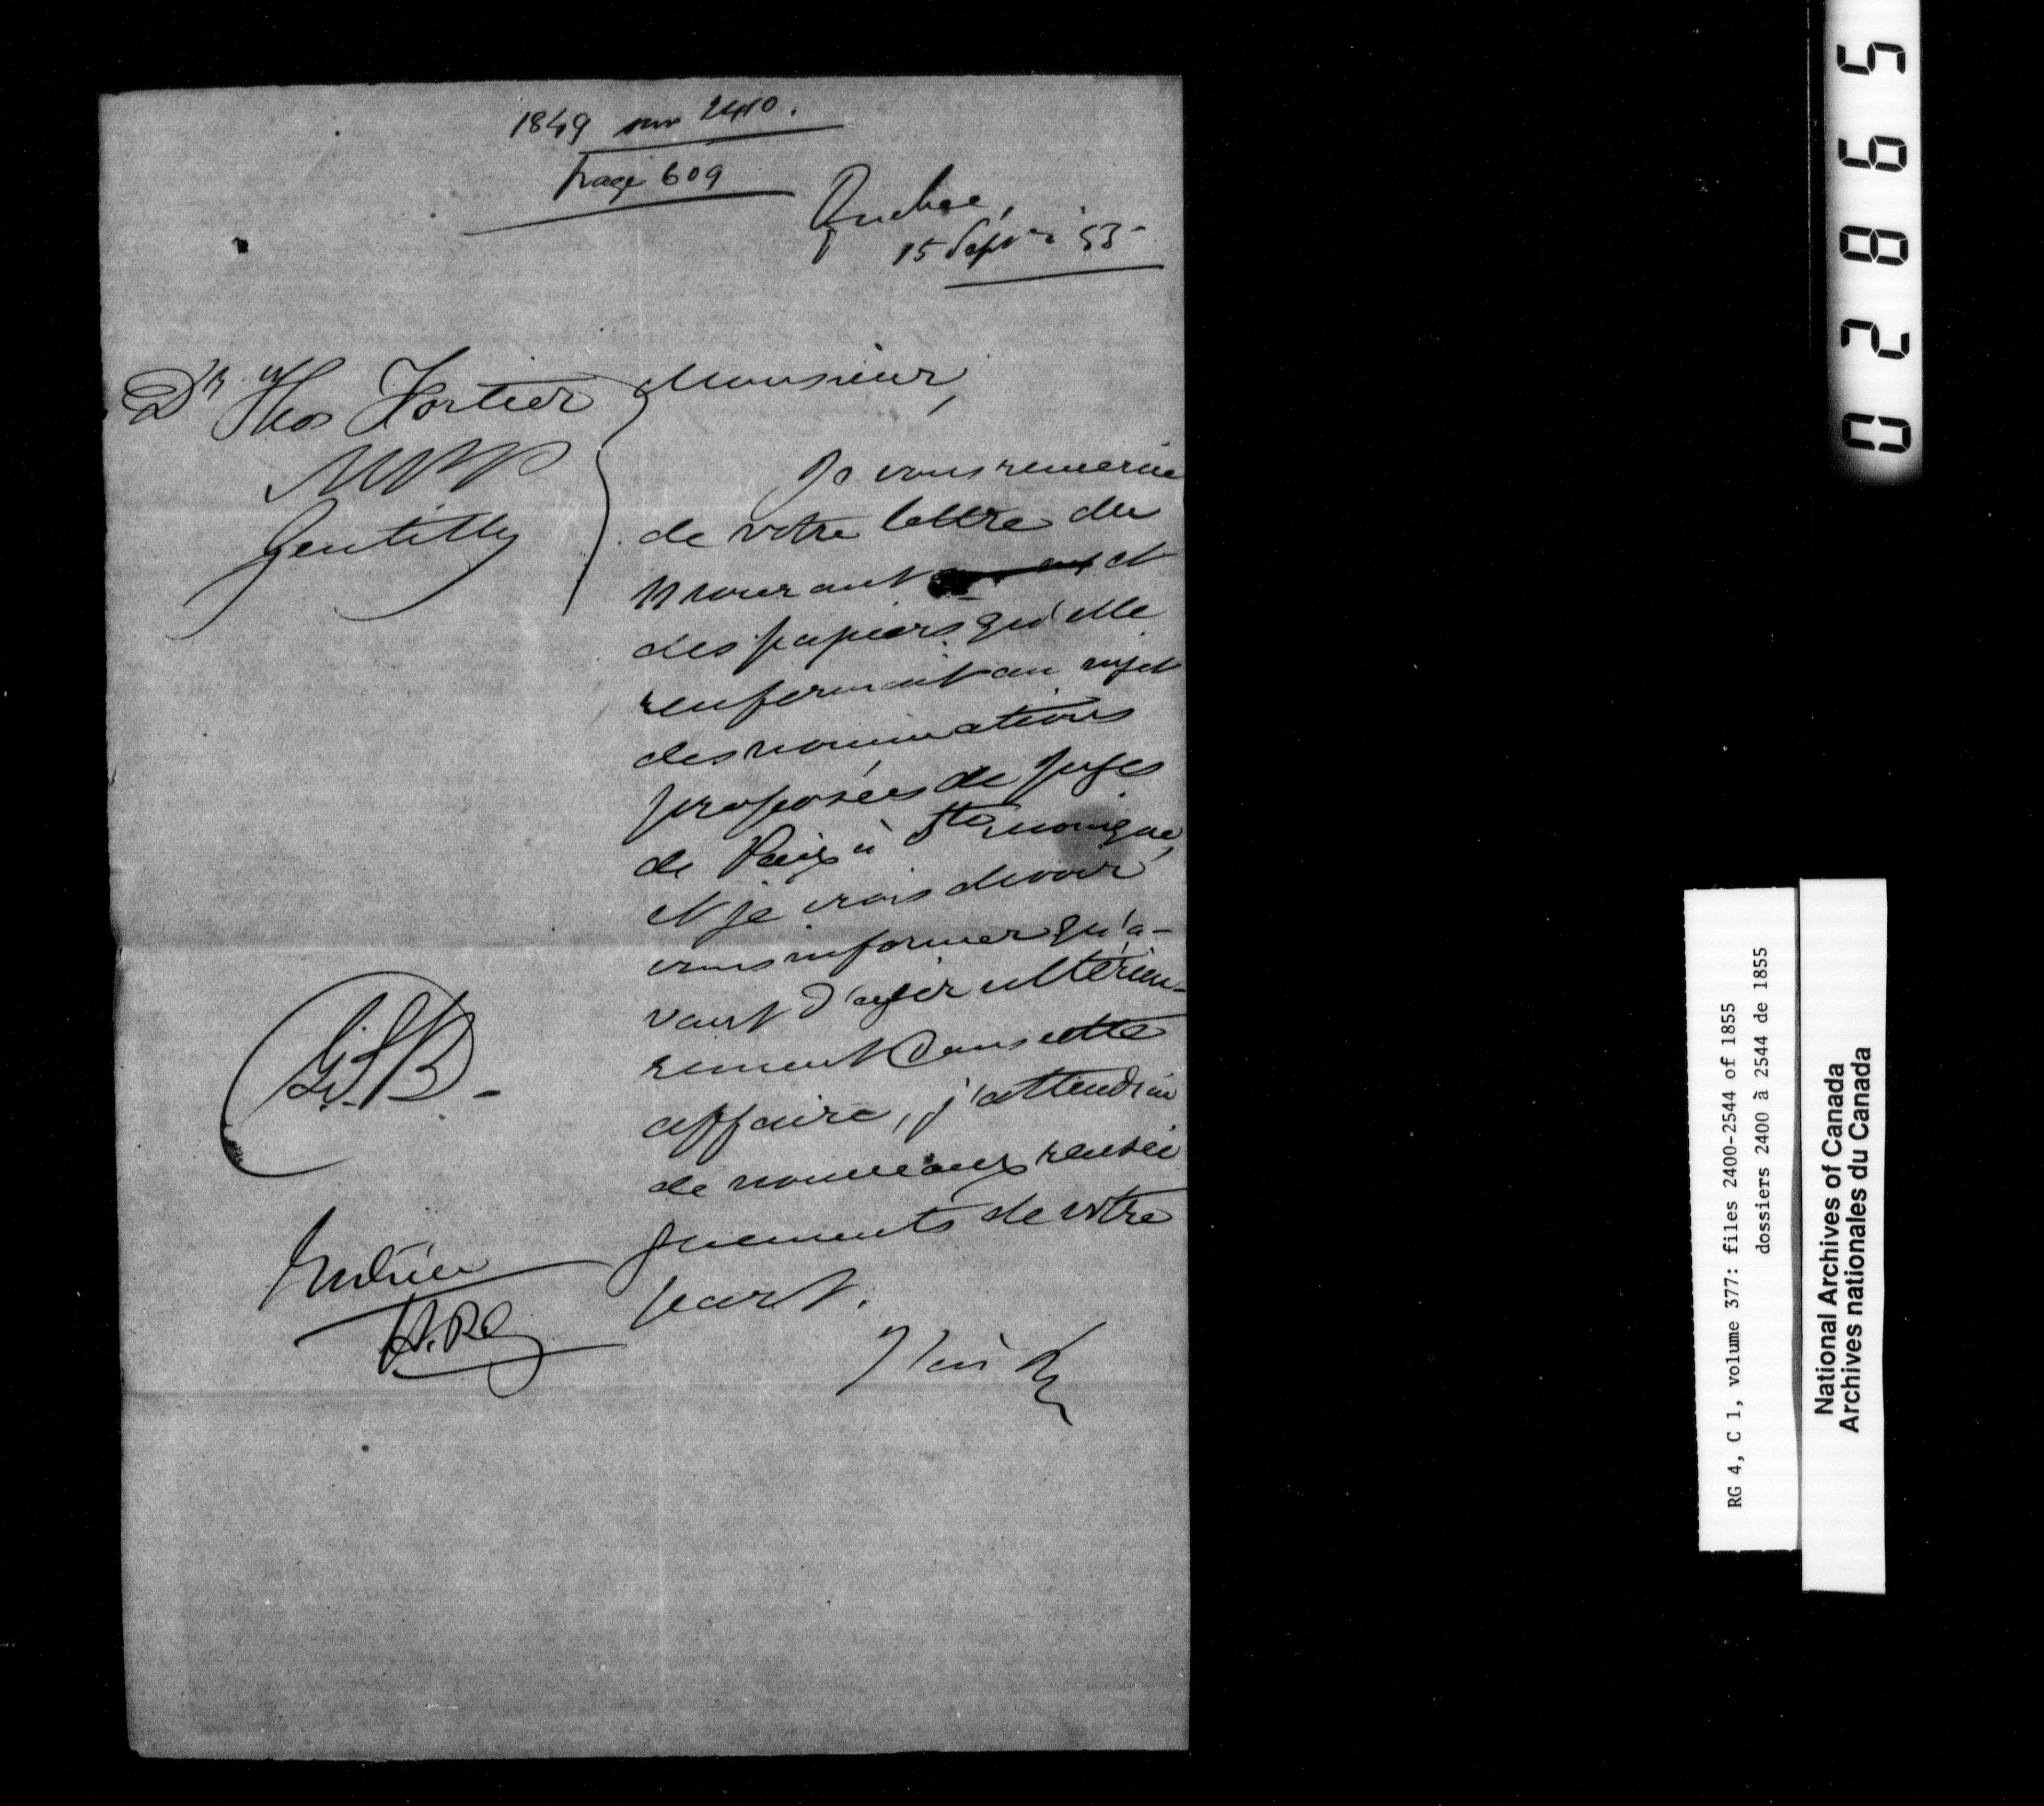 1849 sur 2410.
Page 609
Quebec,
15 Septre 53
Dr Thos Fortier
MPP
Gentilly
Monsieur,
Je vous remercie
de votre lettre du
11 courant et
des papiers qu'elle
renfermait au sujet
des nominations
proposées de Juges
de Paix à Ste Monique,
et je crois devoir
vous informer qu'a-
vant d'agir ultérieu-
rement dans cette
affaire, j'attendrai
de nouveaux rensei
gnements de votre
part.
J'ai &c
G.S.B.
02865
RG 4, C 1, volume 377: files 2400-2544 of 1855
dossiers 2400 à 2544 de 1855
National Archives of Canada
Archives nationales du Canada